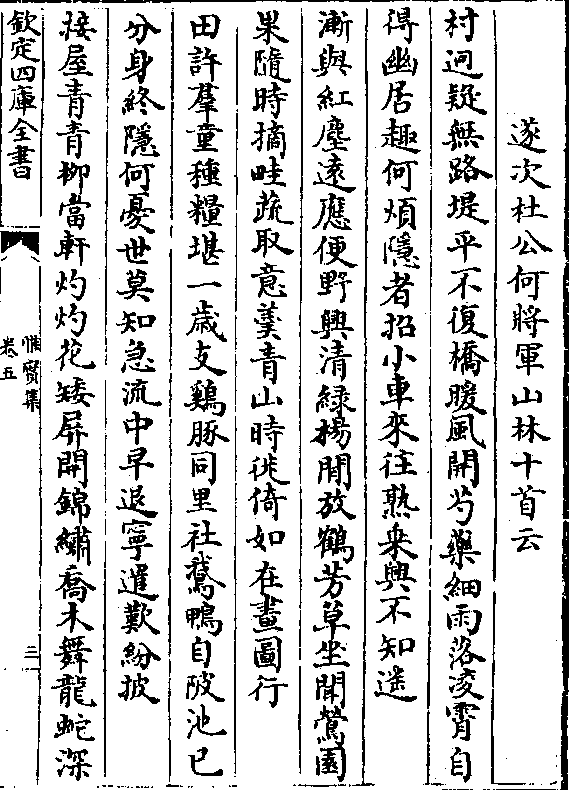 遂次杜公何將軍山林十首云
村迥疑無路堤平不復橋暖風開芍藥細雨落凌霄自
得幽居趣何煩隱者招小車來往熟乗興不知遥
漸與紅塵遠應便野興清緑楊閒放鶴芳草坐聞鶯園
果隨時摘畦蔬取意羮青山時徙倚如在畫圖行
田許羣童種糧堪一歲支鷄豚同里社鵞鴨自陂池已
分身終隱何憂世莫知急流中早退寧遑歎紛披
接屋青青柳當軒灼灼花矮屏開錦繡喬木舞龍蛇深
欽定四庫全書
惟實集
卷五
三